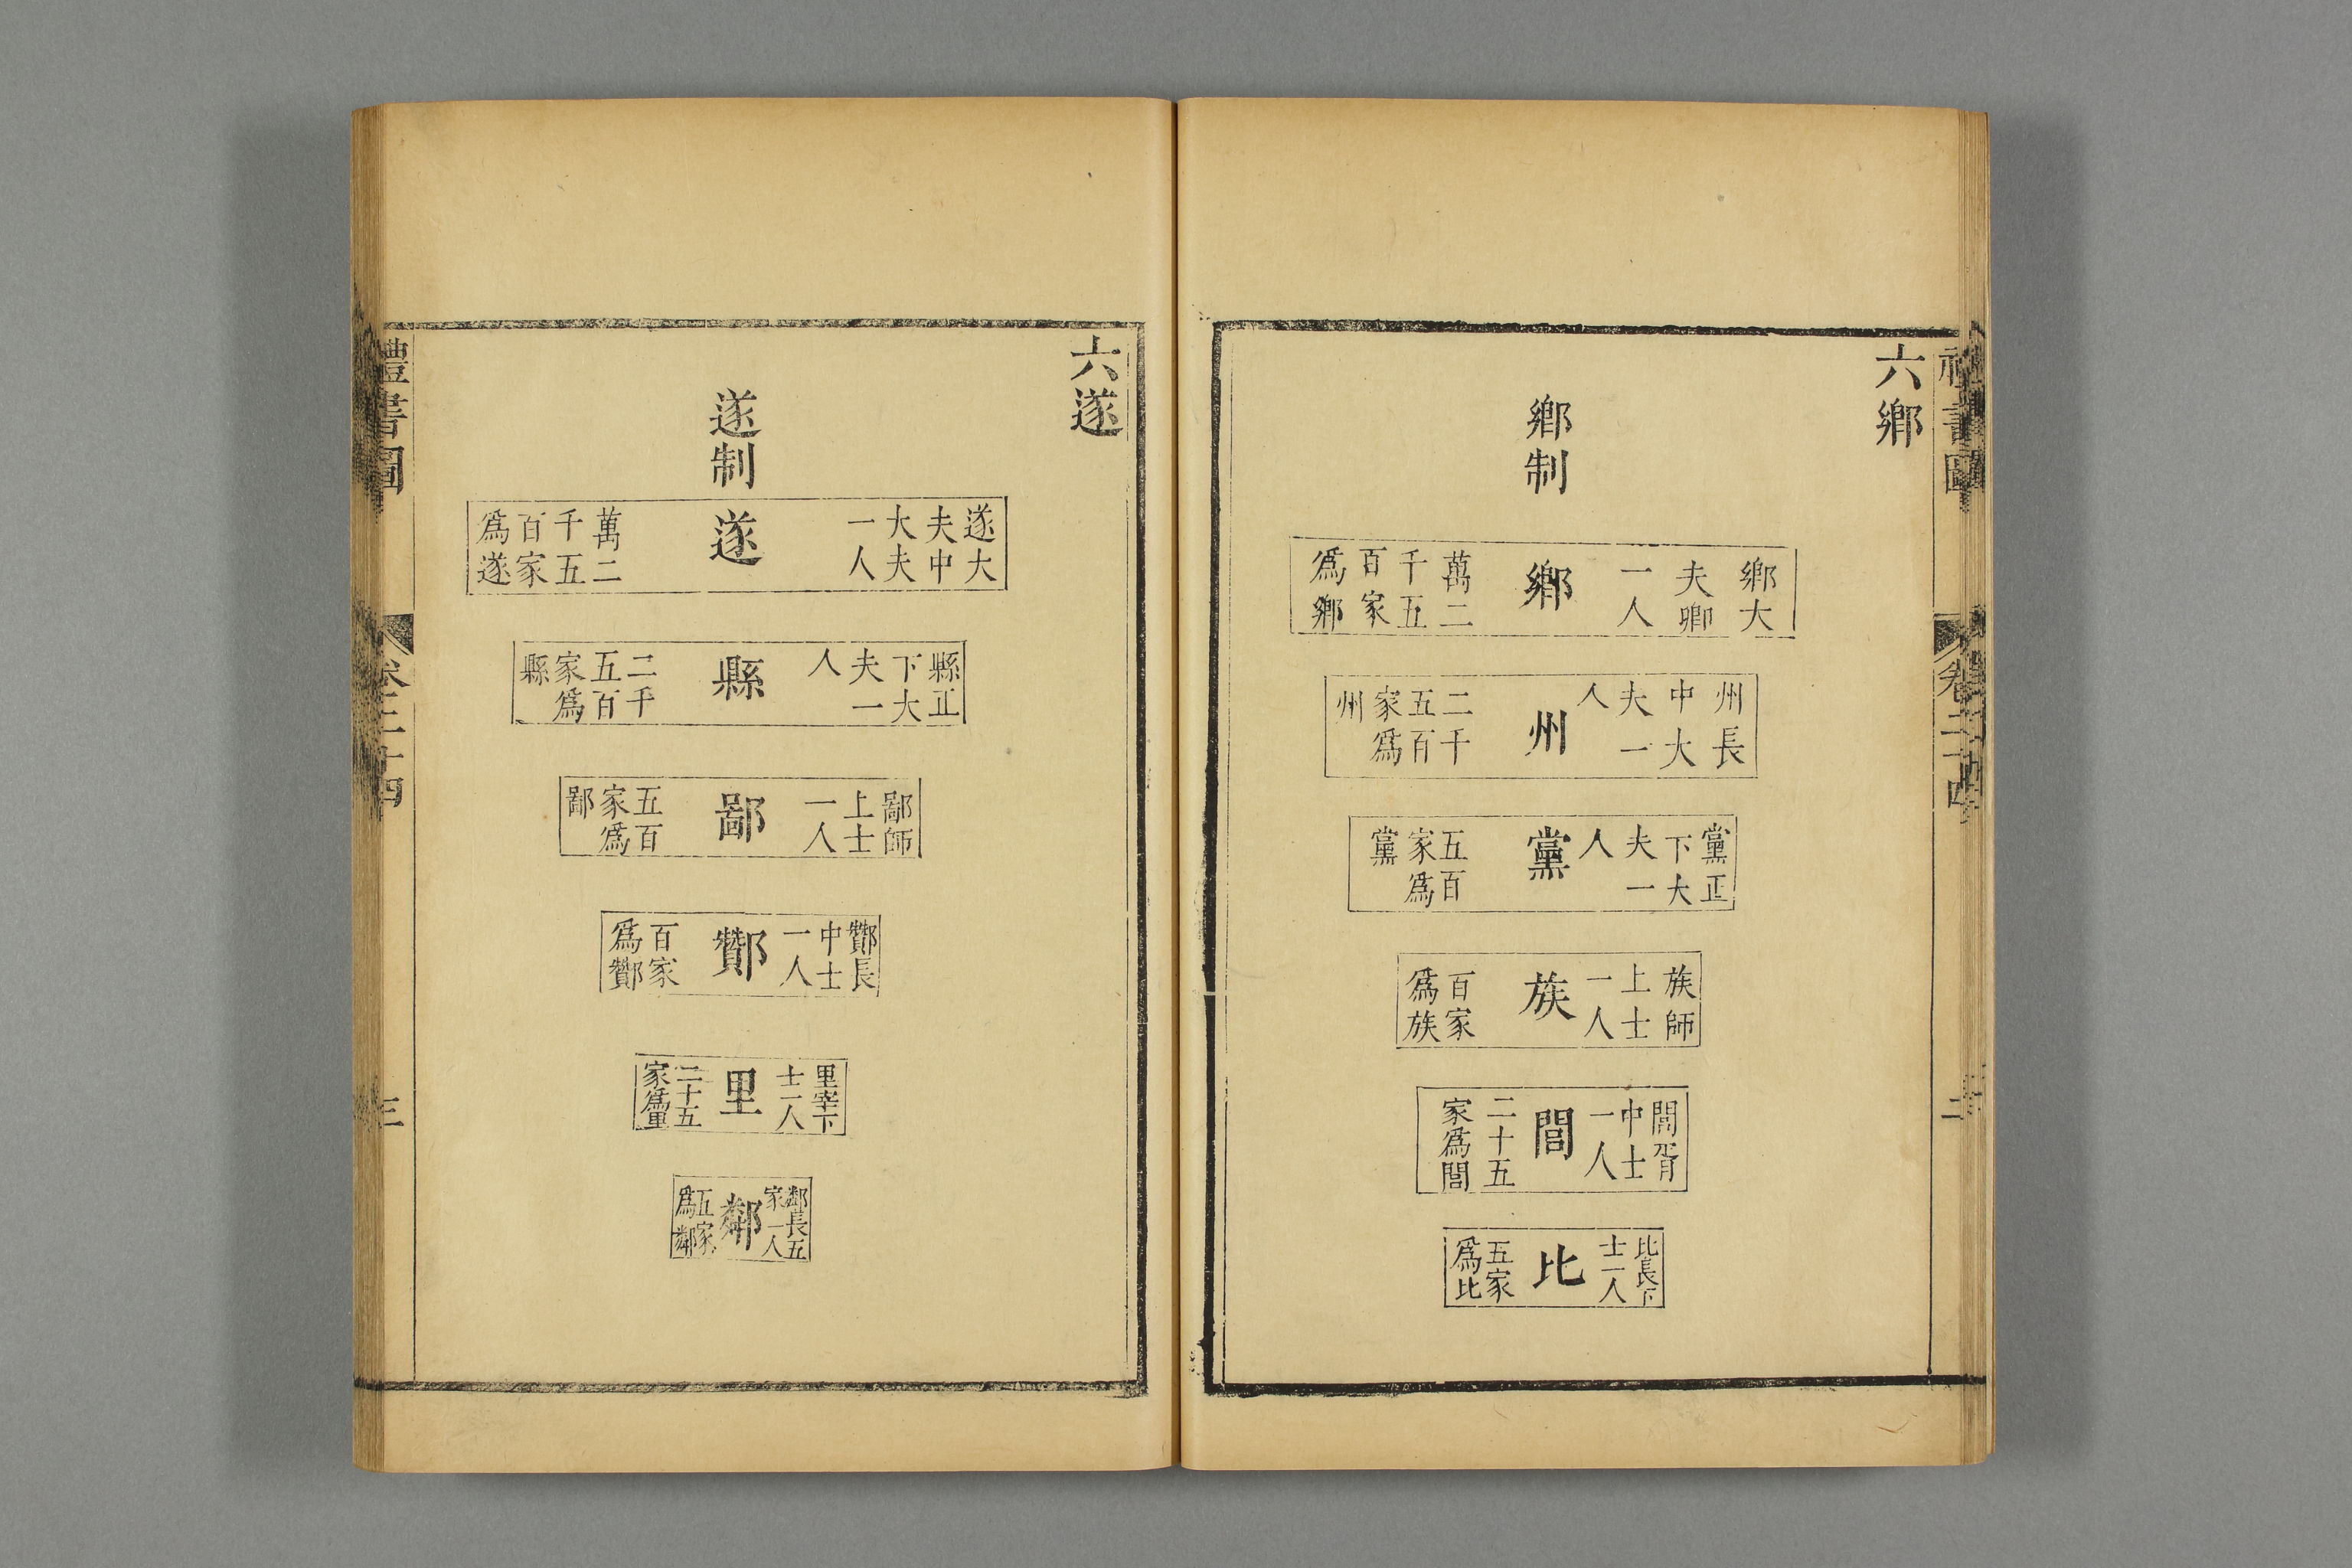 禮書圖
卷二十四
二
六鄉
鄉制
鄉大
夫卿
一人
鄉
萬二
千五
百家
爲鄉
州長
中大
夫一
人
州
二千
五百
家爲
州
黨正
下大
夫一
人
黨
五百
家爲
黨
族師
上士
一人
族
百家
爲族
閭胥
中士
一人
閭
二十五
家爲閭
比長下
士一人
比
五家
爲比
六遂
遂制
遂大
夫中
大夫
一人
遂
萬二
千五
百家
爲遂
縣正
下大
夫一
人
縣
二千
五百
家爲
縣
鄙師
上士
一人
鄙
五百
家爲
鄙
酇長
中士
一人
酇
百家
爲酇
里宰下
士一人
里
二十五
家爲里
鄰長五
家一人
鄰
五家
爲鄰
禮書圖
卷二十四
三